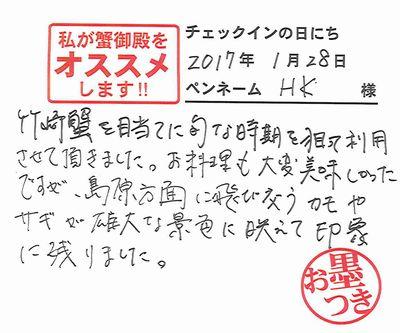 私が蟹御殿を
オススメ
します!!
チェックインの日にち
2017年 1月28日
ペンネーム HK 様
竹崎蟹を目当てに旬な時期を狙って利用
させて頂きました。お料理も大変美味しかった
ですが、島原方面に飛び交うカモや
サギが雄大な景色に映えて印象
に残りました。
お墨つき